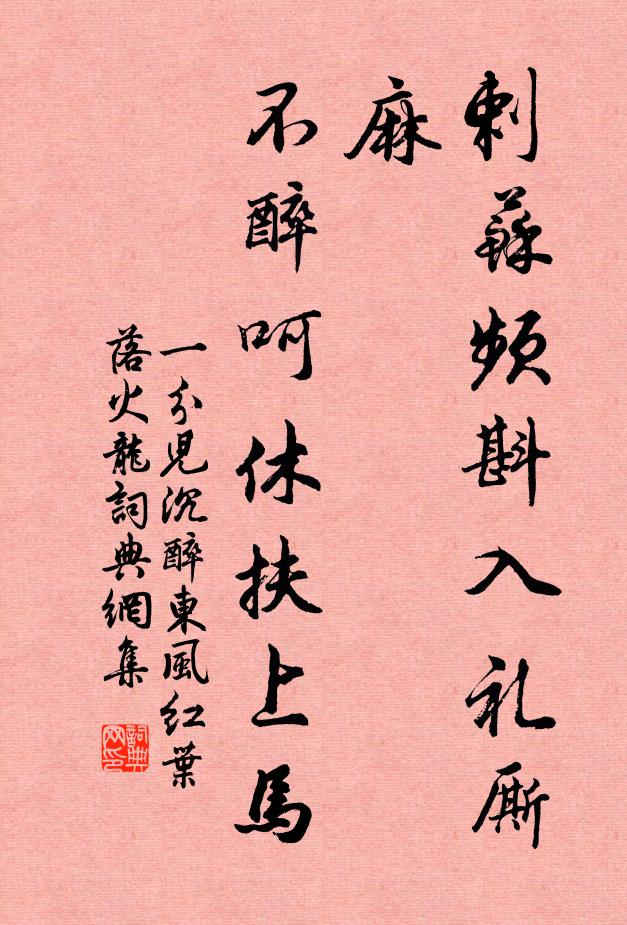 剌蘇頻斟入礼厮
麻
不醉呵休扶上馬
一分児沉醉東風紅葉
落火龍詞典網集
詞典
网印